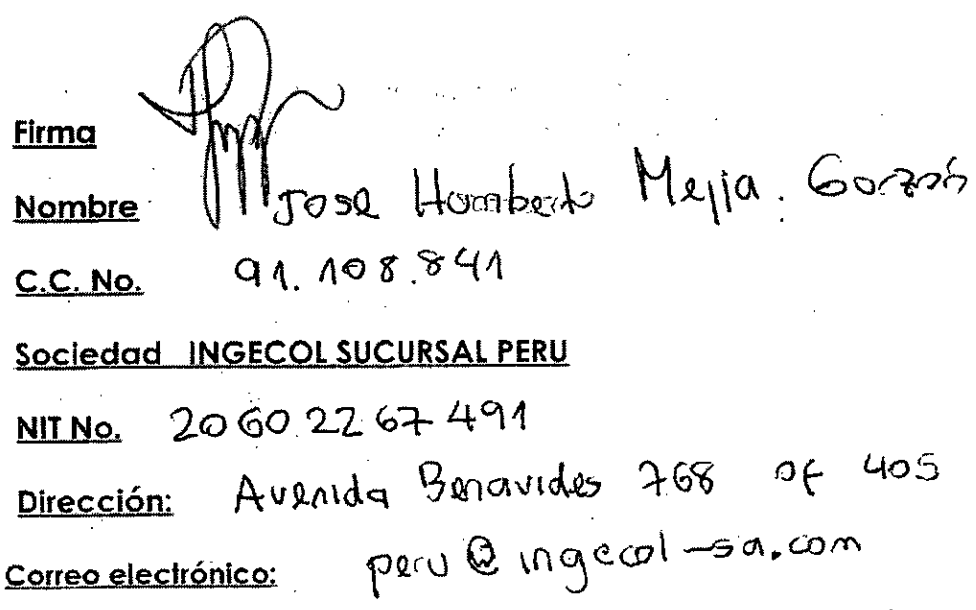 Firma
Nombre Jose Humberto Mejia Garzón
C.C. No. 91.108.841
Sociedad INGECOL SUCURSAL PERU
NIT No. 20602267491
Dirección: Avenida Benavides 768 of 405
Correo electrónico: peru@ingecol-sa.com